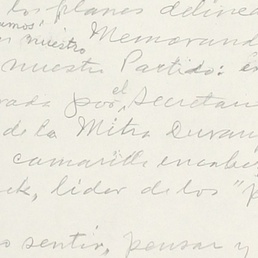 los planos delinea
amos"
en nuestro Memorand
nuestro Partido: e
rada por el Secretar
de la Mitra Duran
camarilla encabe
ck, lider de los "p
o sentir, pensar y